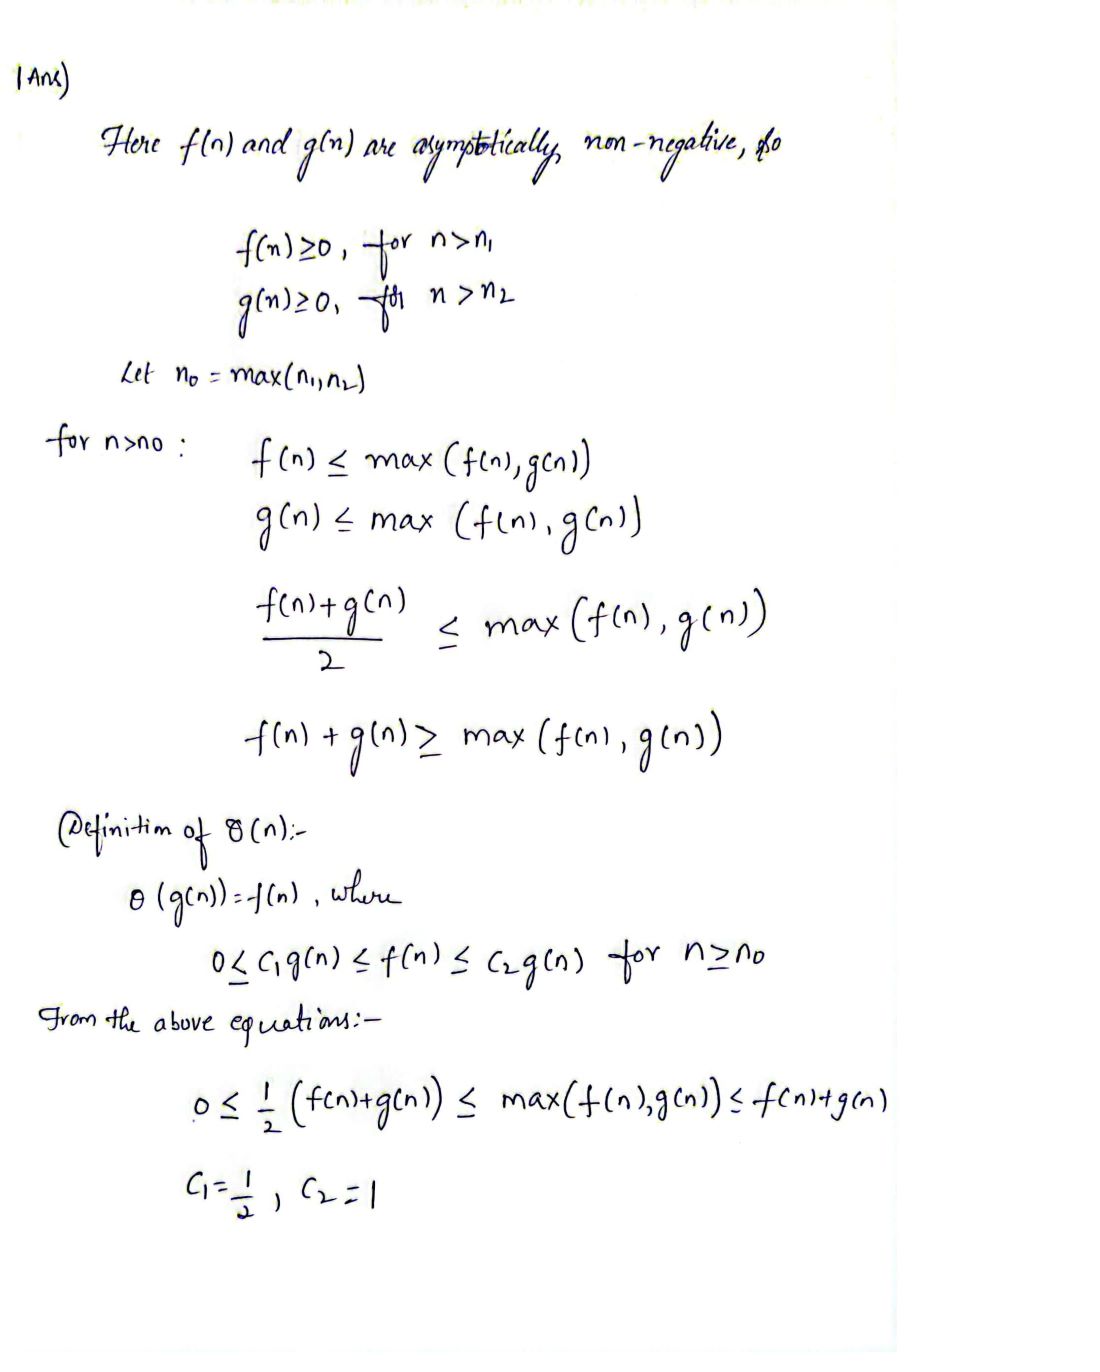 1 Ans)
Here f(n) and g(n) are asymptotically non-negative, so
f(n) ≥ 0, for n > n₁
g(n) ≥ 0, for n > n₂
Let n₀ = max(n₁, n₂)
for n > n₀ : f(n) ≤ max (f(n), g(n))
g(n) ≤ max (f(n), g(n))
(f(n) + g(n)) / 2 ≤ max (f(n), g(n))
f(n) + g(n) ≥ max (f(n), g(n))
Definition of θ(n):-
θ(g(n)) = f(n), where
0 ≤ C₁g(n) ≤ f(n) ≤ C₂g(n) for n ≥ n₀
From the above equations:-
0 ≤ 1/2 (f(n)+g(n)) ≤ max(f(n), g(n)) ≤ f(n)+g(n)
C₁ = 1/2, C₂ = 1